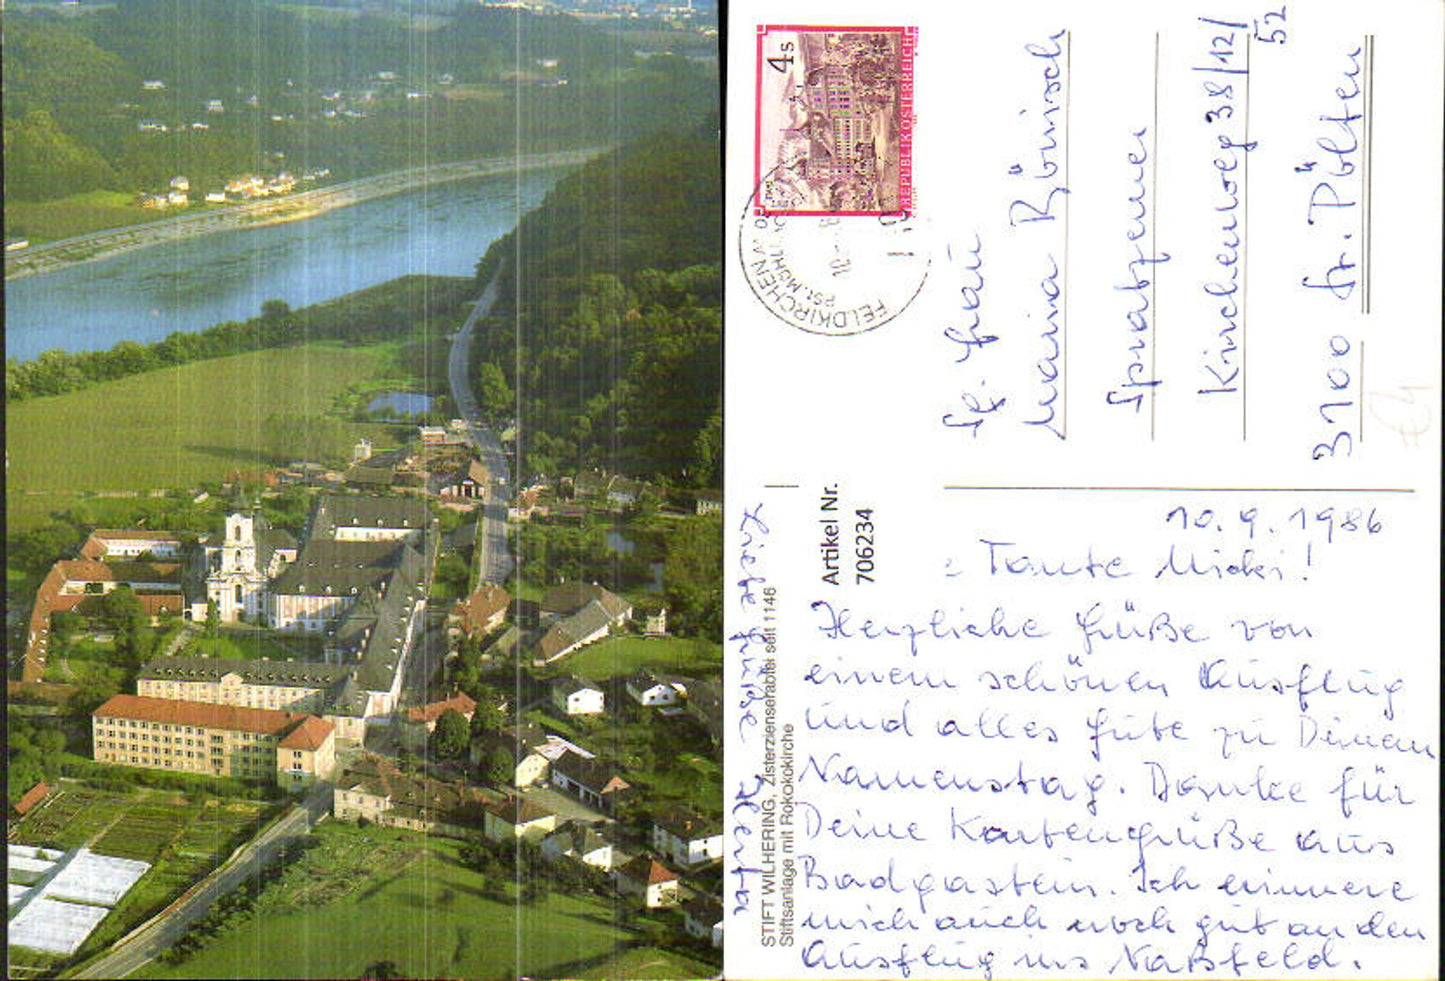 4 S
REPUBLIK ÖSTERREICH
FELDKIRCHEN
Frau
Maria Bönisch
Spratzerner
Kirchenweg 38/12/
52
3100 St. Pölten
Artikel Nr.
706234
STIFT WILHERING, Zisterzienserabtei seit 1146
Stiftsanlage mit Rokokokirche
10. 9. 1986
Tante Micki!
Herzliche Grüße von
einem schönen Ausflug
und alles Gute zu Deinem
Namenstag. Danke für
Deine Kartengrüße aus
Badgastein. Ich erinnere
mich auch noch gut an den
Ausflug ins Naßfeld.
Liebe Grüße Herta